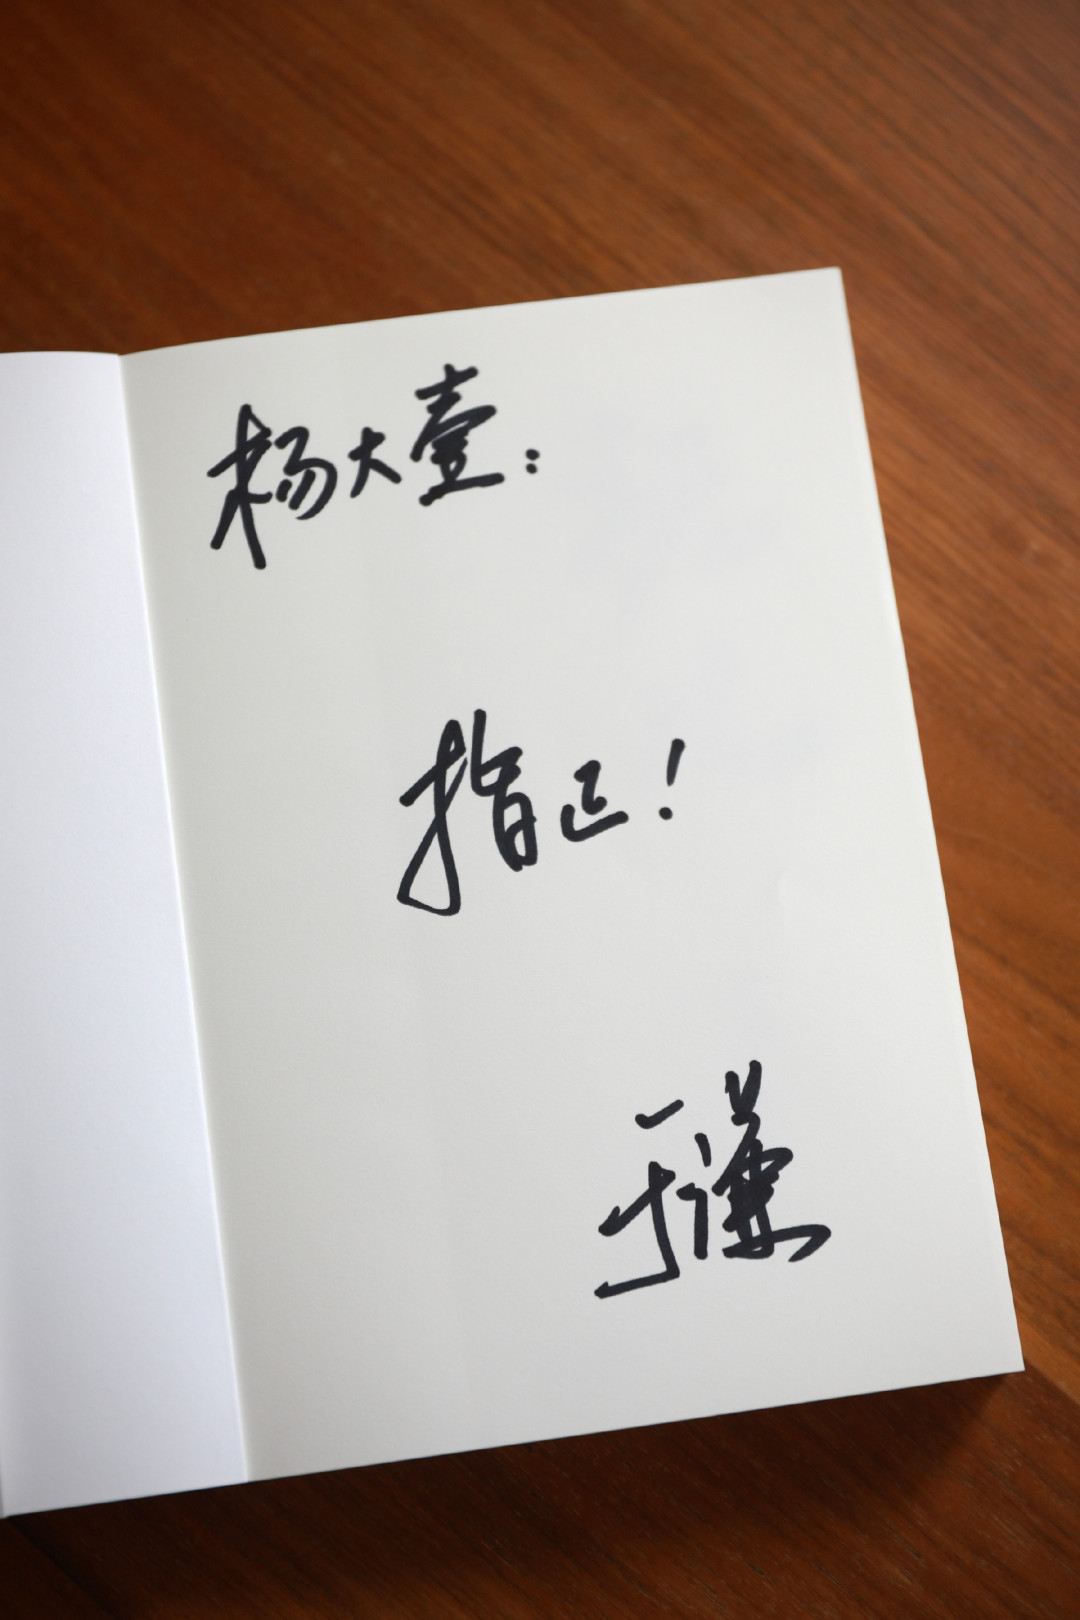 杨大壹：
指正！
于谦